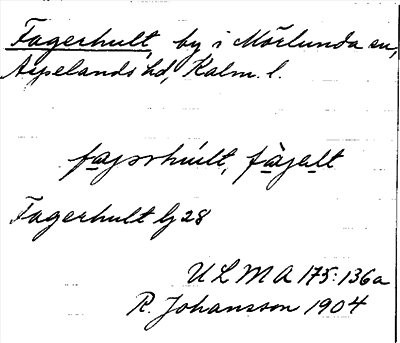 Fagerhult, by i Mörlunda sn,
Aspelands hd, Kalm. l.
fagərhúlt, fàgelt
Fagerhult bj 28
ULMA 175:136a
R. Johansson 1904